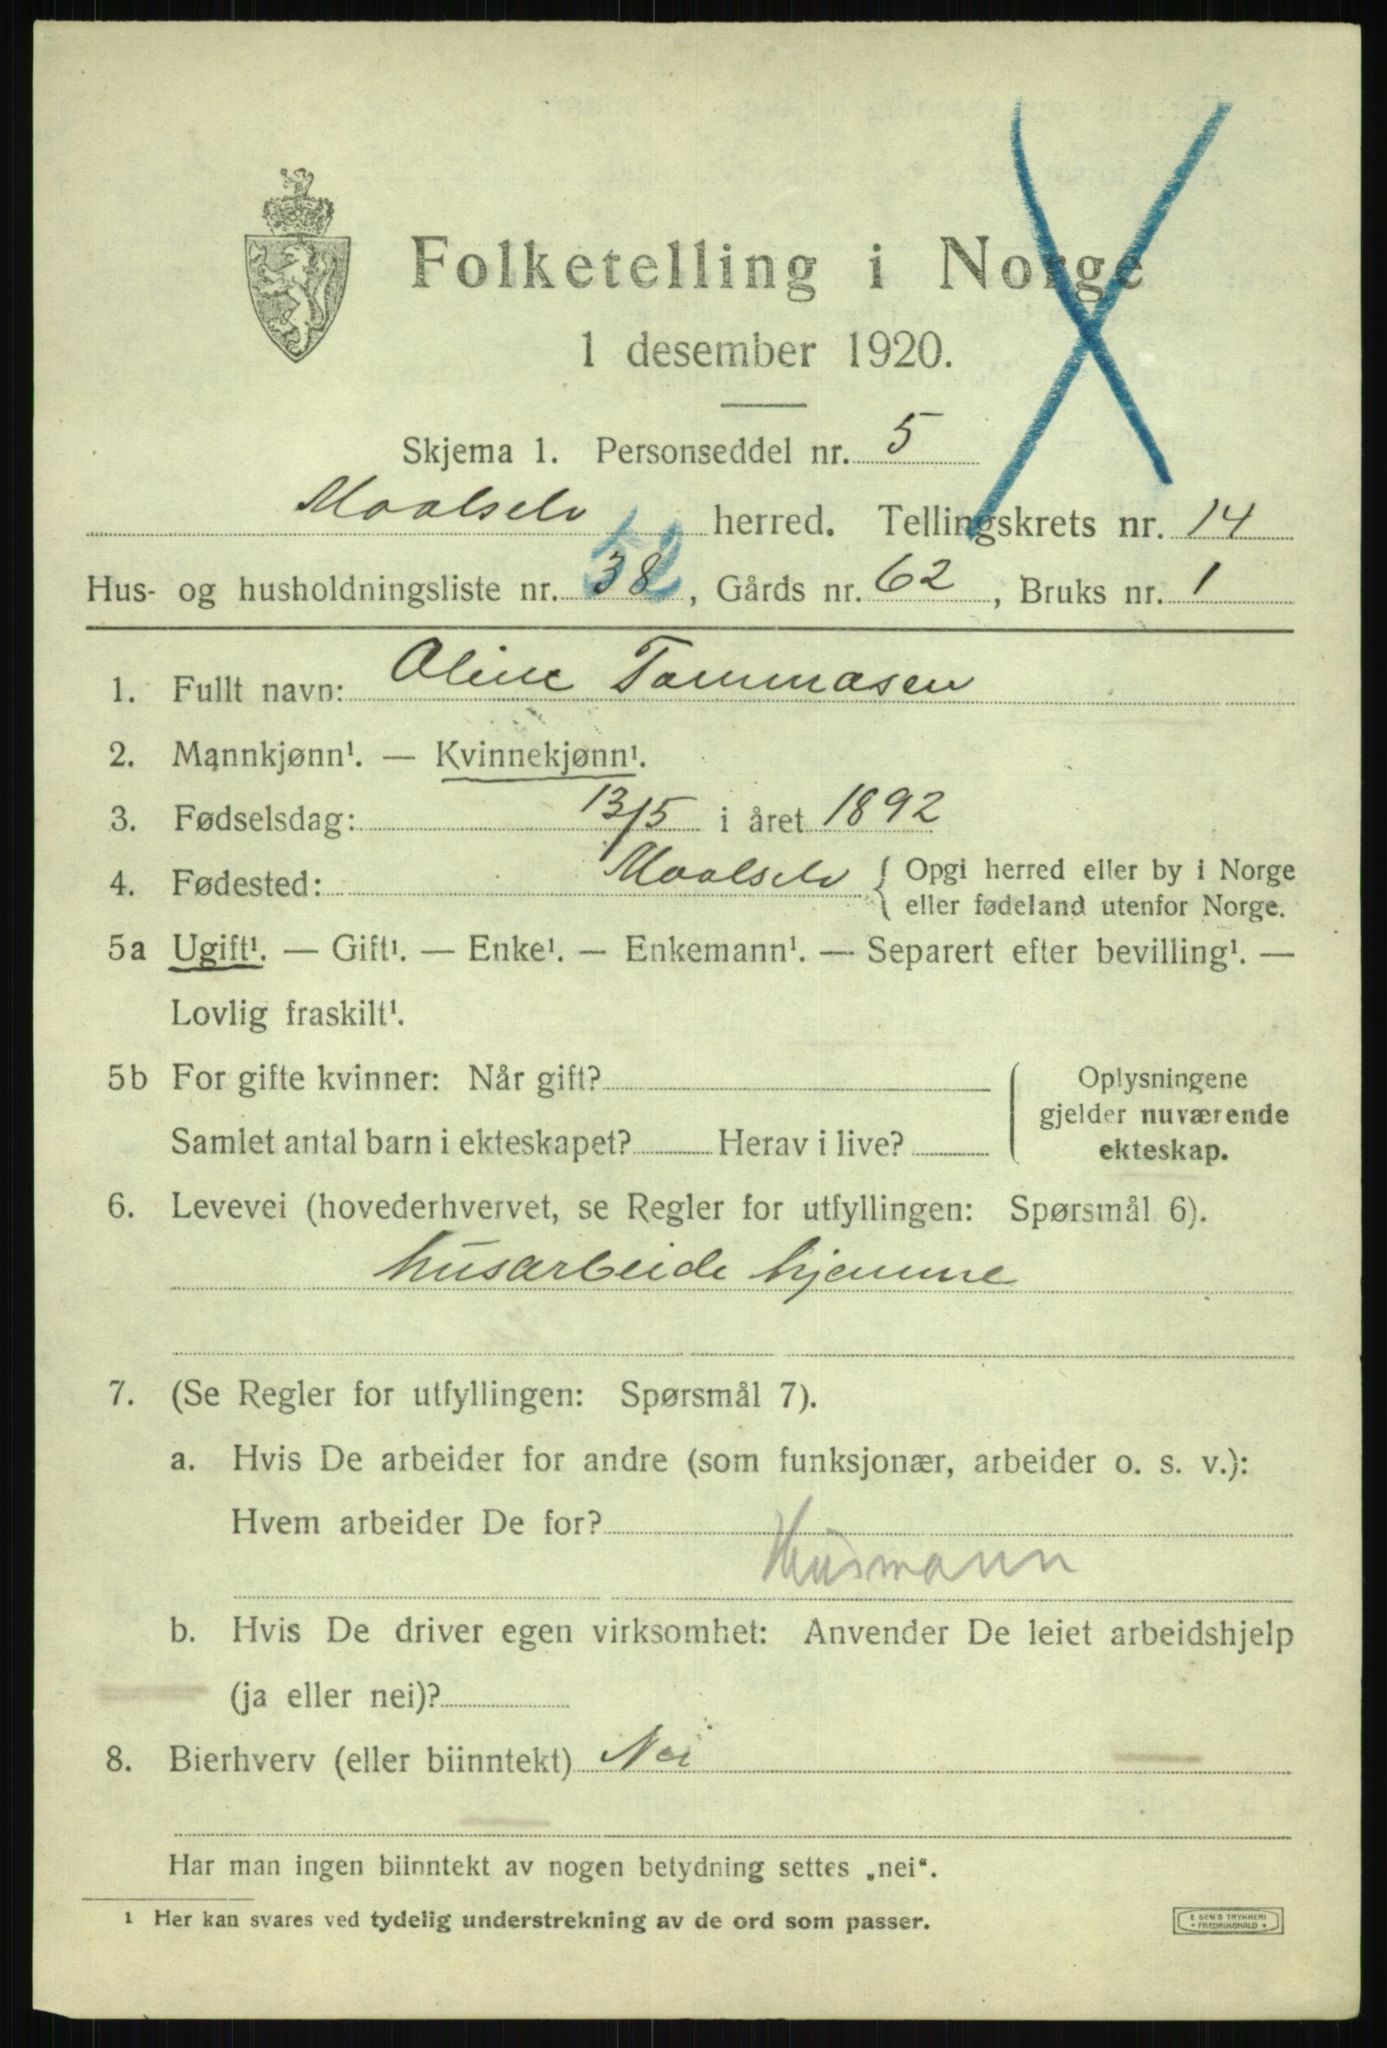 Folketelling i Norge
1 desember 1920.
Skjema 1. Personseddel nr. 5
Maalselv herred. Tellingskrets nr. 14
52
Hus- og husholdningsliste nr. 38, Gårds nr. 62, Bruks nr. 1
1. Fullt navn: Oline Tammasen
2. Mannkjønn¹. — Kvinnekjønn¹.
3. Fødselsdag: 13/5 i året 1892
4. Fødested: Maalselv { Opgi herred eller by i Norge
eller fødeland utenfor Norge.
5a Ugift¹. — Gift¹. — Enke¹. — Enkemann¹. — Separert efter bevilling¹. —
Lovlig fraskilt¹.
5b For gifte kvinner: Når gift?
Samlet antal barn i ekteskapet? Herav i live?
Oplysningene
gjelder nuværende
ekteskap.
6. Levevei (hovederhvervet, se Regler for utfyllingen: Spørsmål 6).
husarbeide hjemme
7. (Se Regler for utfyllingen: Spørsmål 7).
a. Hvis De arbeider for andre (som funksjonær, arbeider o. s. v.):
Hvem arbeider De for?
Husmann
b. Hvis De driver egen virksomhet: Anvender De leiet arbeidshjelp
(ja eller nei)?
8. Bierhverv (eller biinntekt) Nei
Har man ingen biinntekt av nogen betydning settes „nei“.
¹ Her kan svares ved tydelig understrekning av de ord som passer.
E SEM'S TRYKKERI
FREDRIKSHALD